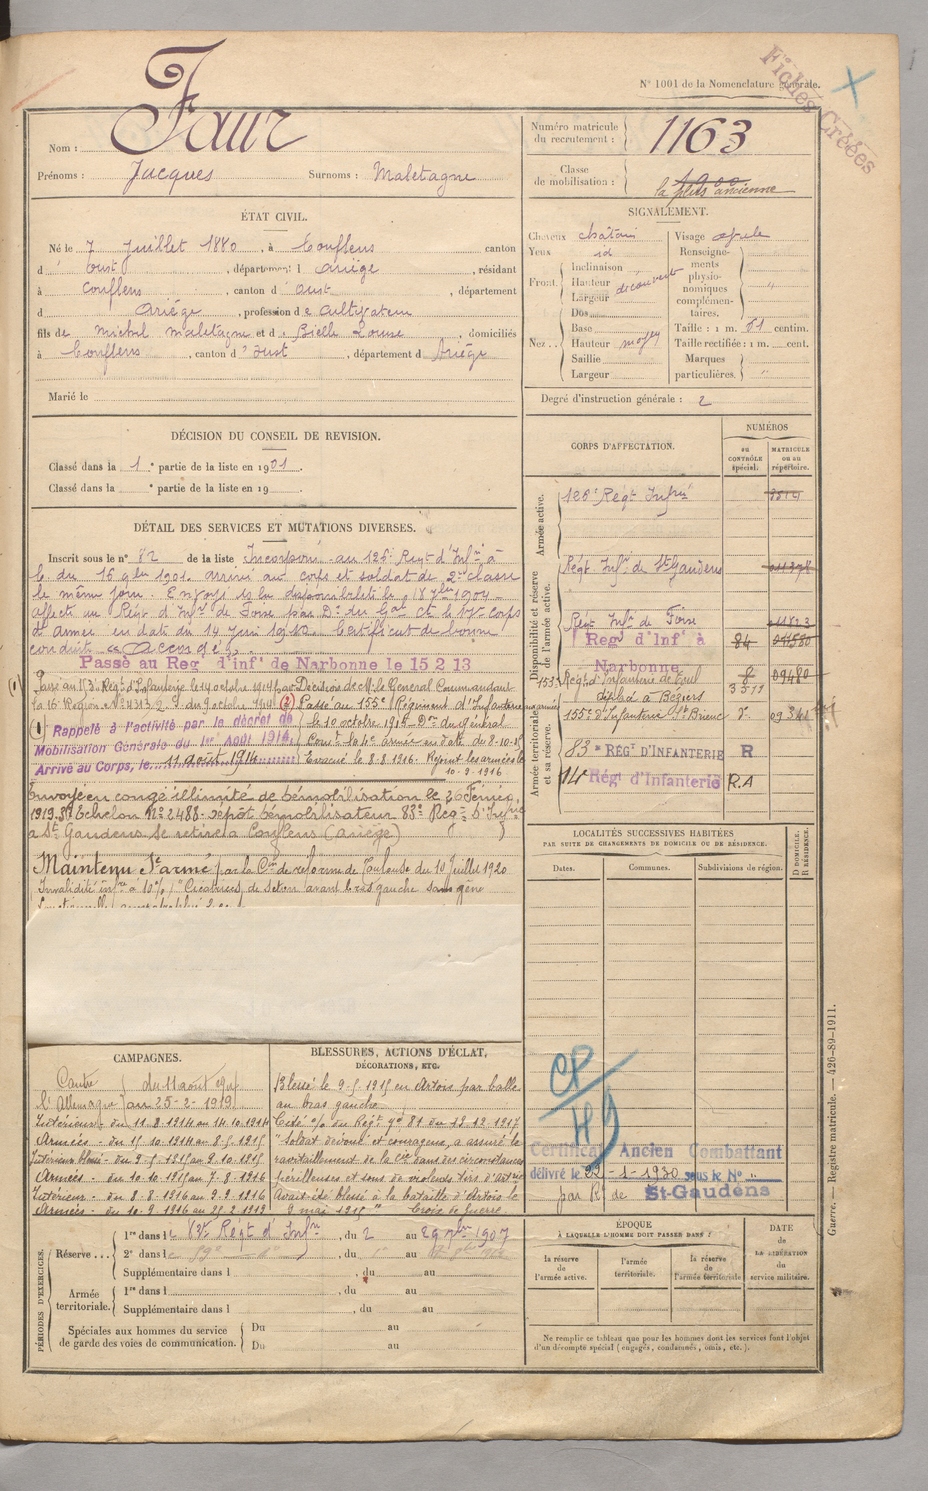 N° 1001 de la Nomenclature générale.
Fiches Créées
Nom : Faur
Prénoms : Jacques Surnoms : Maletagne
Numéro matricule du recrutement : 1163
Classe de mobilisation : 1900 la plus ancienne
ÉTAT CIVIL.
Né le 7 Juillet 1880, à Couflens canton
d' Oust, département d Ariège, résidant
à Couflens, canton d' Oust, département
d Ariége, profession de Cultivateur
fils de Michel Maletagne et d Bielle Louise domiciliés
à Couflens, canton d' Oust, département d Ariége
Marié le
SIGNALEMENT.
Cheveux chatain
Yeux id
Front. Inclinaison
Hauteur découvert
Largeur
Nez .. Dos
Base
Hauteur moyen
Saillie
Largeur
Visage ovale
Renseignements physionomiques complémentaires. "
Taille : 1 m. 61 centim.
Taille rectifiée : 1 m. cent.
Marques particulières. "
Degré d'instruction générale : 2
DÉCISION DU CONSEIL DE REVISION.
Classé dans la 1e partie de la liste en 1901.
Classé dans la e partie de la liste en 19
DÉTAIL DES SERVICES ET MUTATIONS DIVERSES.
Inscrit sous le n° 82 de la liste Incorporé au 126e Régt d'Infie à
c. du 16 9bre 1901. Arrivé au corps et soldat de 2e classe
le même jour. Envoyé ds la disponibilité le 18 7bre 1904
affecté au Régt d'Infie de Foix par Don du Gal Ct le 17e corps
d'armée en date du 14 Juin 1912. Certificat de bonne
conduite "Accordé".
Passé au Reg t d'inft de Narbonne le 15 2 13
Passé au 153e Régt d'Infanterie le 14 octobre 1914 par Décision de Mr le Général Commandant
la 16e Région N° 4313-2 du 9 octobre 1914 (2) Passé au 155e Régiment d'Infanterie
le 10 octobre 1915 Don du général
Comt la 4e armée en date du 8-10-15
Evacué le 8.8.1916. Rejoint les armées le
10-9-1916
(1) Rappelé à l'activité par le décret de
Mobilisation Générale du 1er Août 1914.
Arrivé au Corps, le 11 août 1914
Envoyé en congé illimité de démobilisation le 26 Février
1919. 3e Echelon N° 2488 - dépôt démobilisateur 83e Régt d'Infie
à St Gaudens se retire à Couflens (Ariège)
Maintenu Sce armé par la Con de réforme de Toulouse du 10 Juillet 1920
Invalidité infre à 10% "Cicatrices, de séton avant bras gauche sans gêne
CORPS D'AFFECTATION.
NUMÉROS
AU CONTRÔLE spécial.
MATRICULE ou au répertoire.
Armée active.
126e Régt Infie
Disponibilité et réserve de l'armée active.
Régt Infie de St Gaudens
Régt Infie de Foix
Regt d'Inft à Narbonne 84
153e Régt d'Infanterie de Toul
dépôt à Béziers 09480
Armée territoriale et sa réserve.
155e d'Infanterie St Brieuc
83e RÉGt D'INFANTERIE R
14 Régt d'Infanterie R.A
LOCALITÉS SUCCESSIVES HABITÉES
PAR SUITE DE CHANGEMENTS DE DOMICILE OU DE RÉSIDENCE.
Dates.
Communes.
Subdivisions de région.
D DOMICILE. R RÉSIDENCE.
CP
Certificat Ancien Combattant
délivré le 22-1-1930 sous le N° "
par R. de St-Gaudens
CAMPAGNES.
Contre l'Allemagne du 11 août 1914 au 25-2-1919
Intérieur - du 11.8.1914 au 14.10.1914
Armées - du 15.10.1914 au 8.5.1915
Intérieur blessé - du 9-5-1915 au 9.10.1915
Armées - du 10.10.1915 au 7-8-1916
Intérieur - du 8.8.1916 au 9.9.1916
Armées - du 10.9.1916 au 25.2.1919
BLESSURES, ACTIONS D'ÉCLAT,
DÉCORATIONS, ETC.
Blessé le 9-5-1915 en Artois par balle
au bras gauche.
Cité % du Régt n° 81 du 13.12.1917
"Soldat dévoué et courageux, a assuré le
ravitaillement de la Cie dans des circonstances
périlleuses et sous de violents tirs d'artie
Avait été blessé à la bataille d'Artois le
9 mai 1915" Croix de guerre.
PÉRIODES D'EXERCICES.
Réserve ... 1re dans le 83e Régt d'Infie, du 2 au 29 7bre 1907
2e dans le
Supplémentaire dans l , du au
Armée territoriale. 1re dans l , du au
Supplémentaire dans l , du au
Spéciales aux hommes du service de garde des voies de communication. Du au
Du au
ÉPOQUE
À LAQUELLE L'HOMME DOIT PASSER DANS :
la réserve de l'armée active.
l'armée territoriale.
la réserve de l'armée territoriale
DATE de LA LIBÉRATION du service militaire.
Ne remplir ce tableau que pour les hommes dont les services font l'objet
d'un décompte spécial (engagés, condamnés, omis, etc.).
Guerre. — Registre matricule. — 426-89-1911.